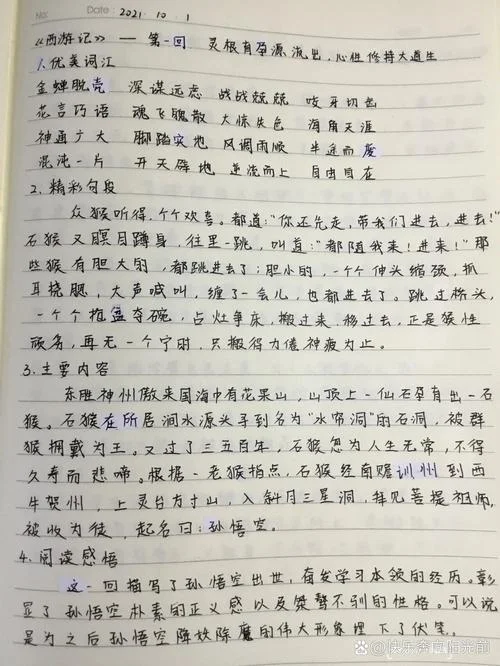 No:
Date: 2021. 10. 1
《西游记》 — 第一回 灵根育孕源流出，心性修持大道生
1.优美词汇
金蝉脱壳 深谋远虑 战战兢兢 咬牙切齿
花言巧语 魂飞魄散 大惊失色 海角天涯
神通广大 脚踏实地 风调雨顺 半途而废
混沌一片 开天辟地 逆流而上 自由自在
2.精彩句段
众猴听得，个个欢喜。都道："你还先走，带我们进去，进去！"
石猴又瞑目蹲身，往里一跳，叫道："都随我来！进来！"那
些猴有胆大的，都跳进去了；胆小的，一个个伸头缩颈，抓
耳挠腮，大声喊叫，缠了一会儿，也都进去了。跳过桥头，
一个个抢盆夺碗，占灶争床，搬过来，移过去，正是猴性
顽劣，再无一个宁时，只搬得力倦神疲为止。
3.主要内容
东胜神州傲来国海中有花果山，山顶上一仙石孕育出一石
猴。石猴在所居涧水源头寻到名为"水帘洞"的石洞，被群
猴拥戴为王。又过了三五百年，石猴忽为人生无常，不得
久寿而悲啼。根据一老猴指点，石猴经南赡训州到西
牛贺州，上灵台方寸山，入斜月三星洞，拜见菩提祖师，
被收为徒，起名曰：孙悟空。
4.阅读感悟
这一回描写了孙悟空出世，奋发学习本领的经历。彰
显了孙悟空朴素的正义感以及桀骜不驯的性格。可以说
是为之后孙悟空降妖除魔的伟大形象埋下了伏笔。
快乐奔直阳光前